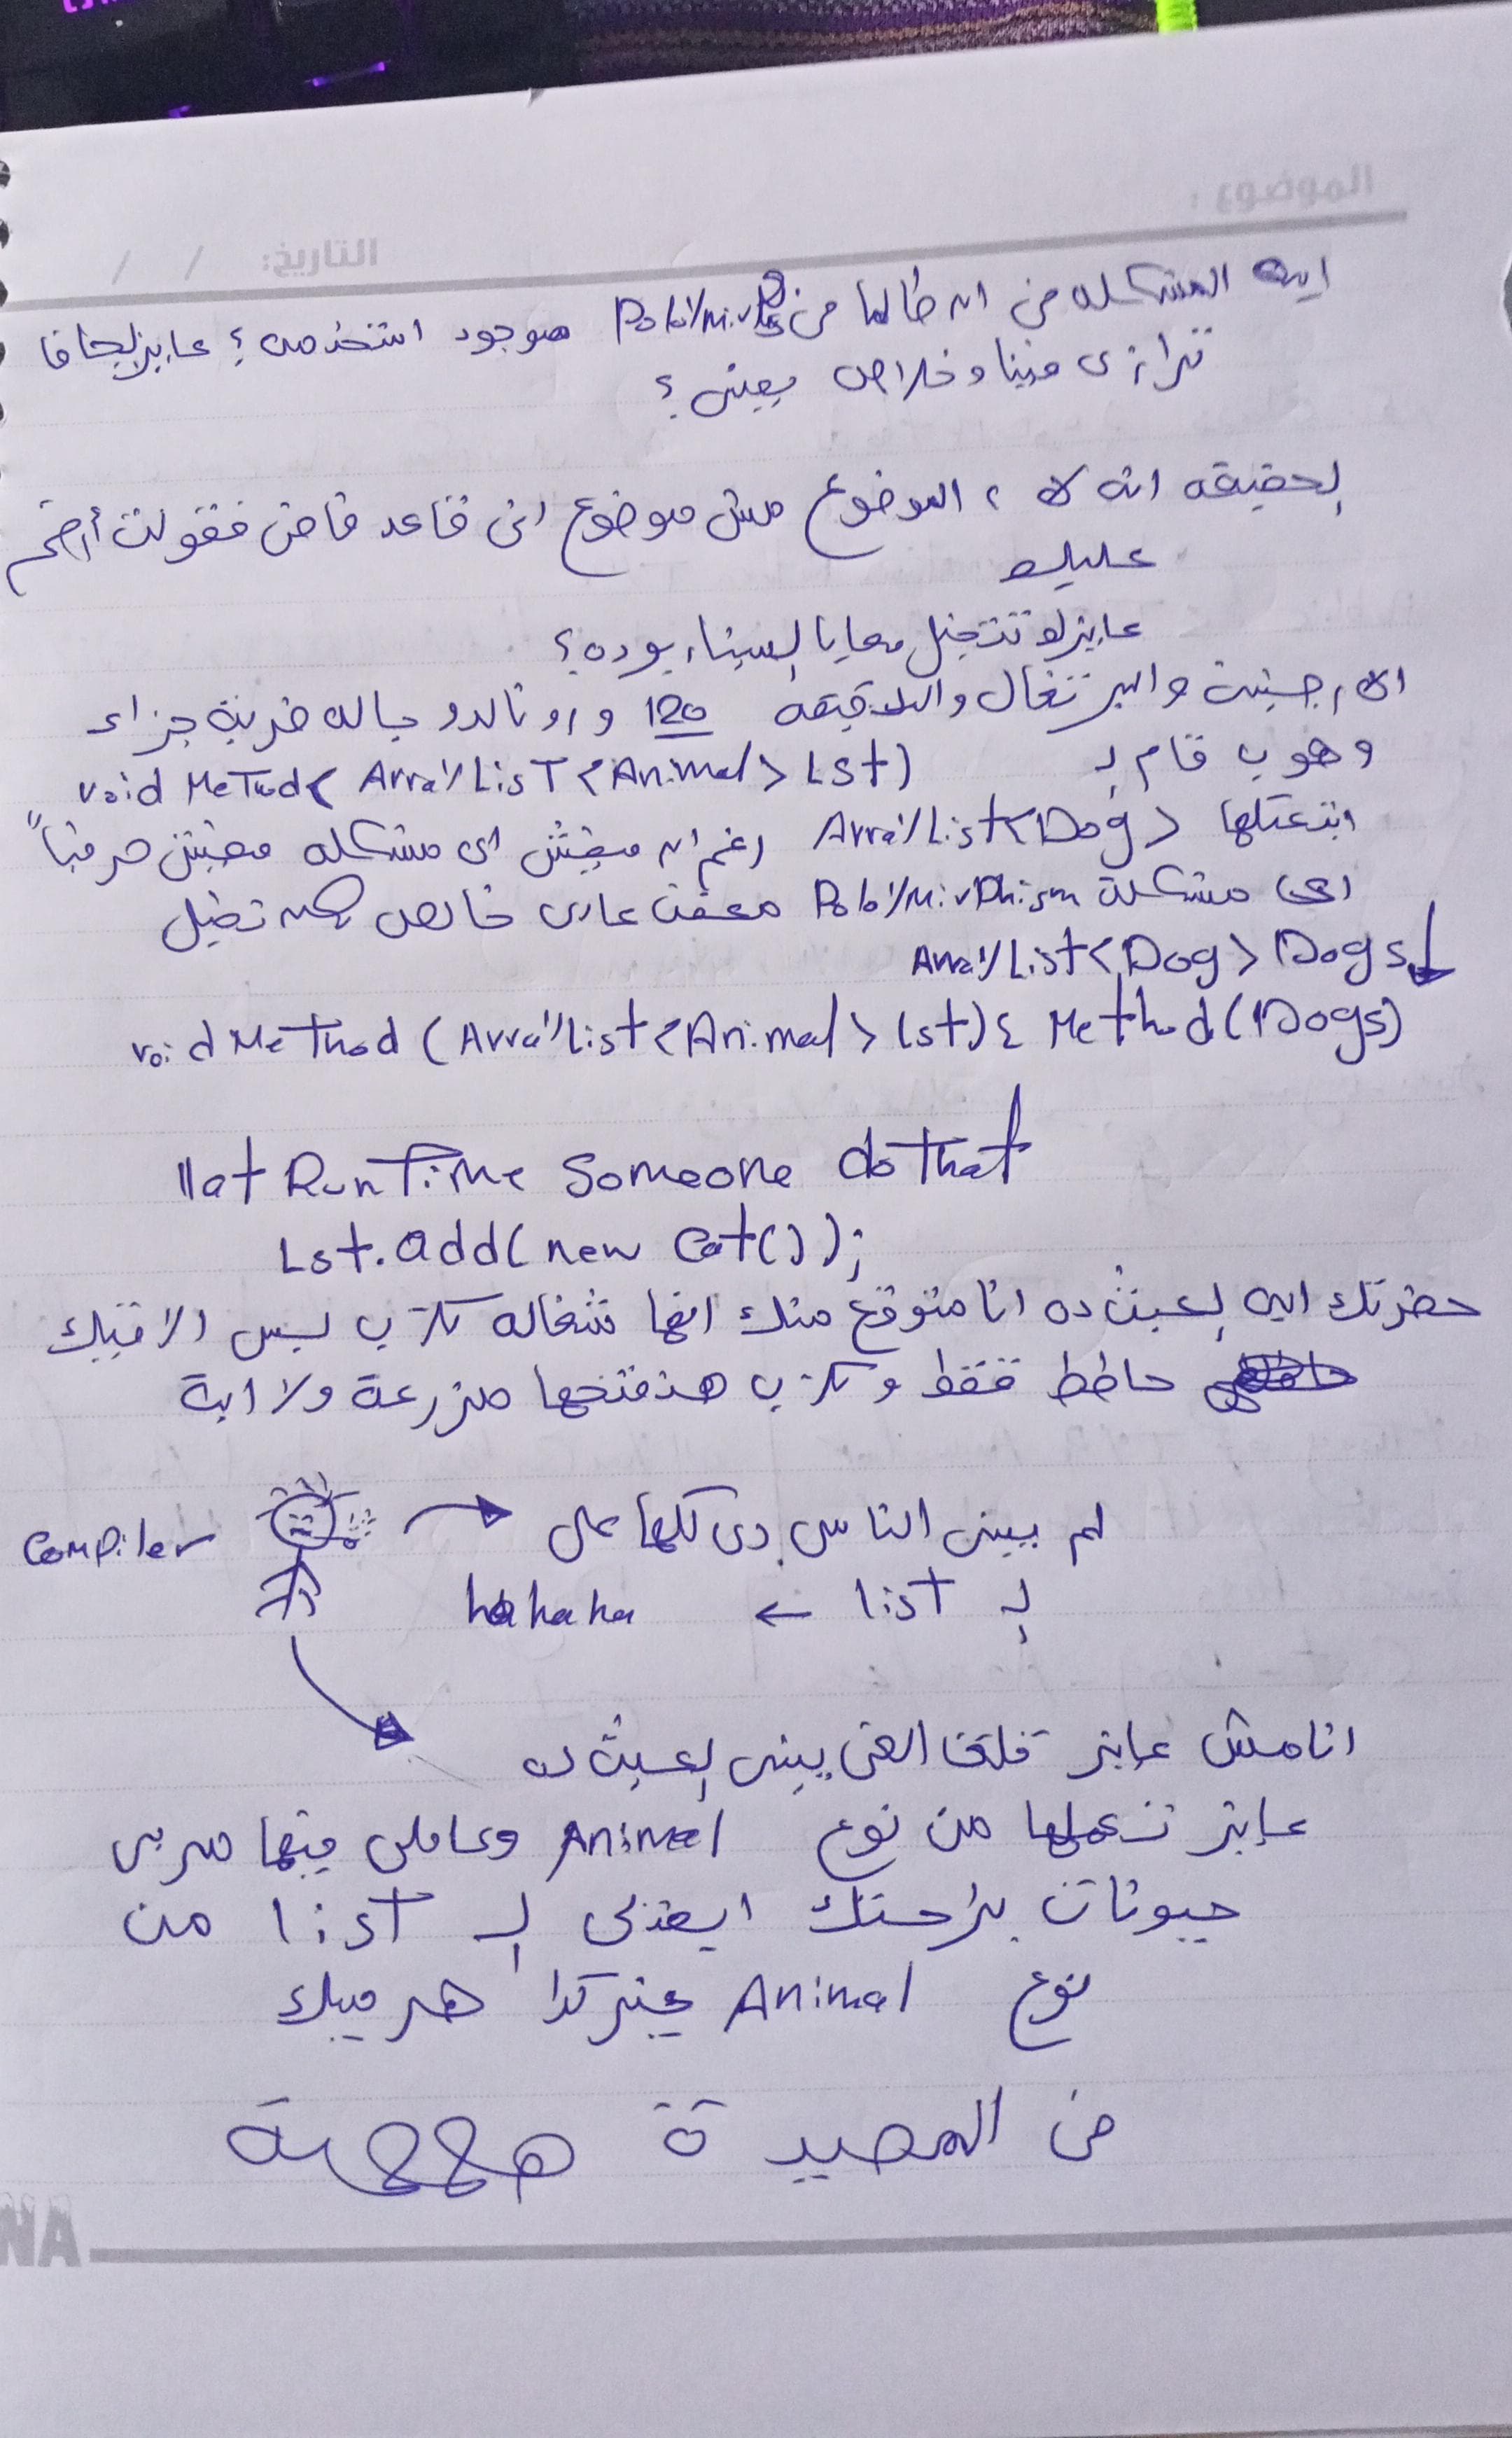 الموضوع :
التاريخ: / /
ايه المشكله من ان طالما في Polymirphism موجود استخدمه ؟ عايز لجافا
تراذي فينا وخلاص يعني ؟
لحقيقه انه لا ، الموضوع مش موضوع اني قاعد فاضي فقولت أرخم
عليك
عايزك تتخيل معايا لسيناريو ده ؟
الارجنتين والبرتغال والدقيقه 120 و رونالدو جاله ضربة جزاء
وهوب قام لـ
void Method( ArrayList <Animal> Lst)
ابتعتلها ArrayList<Dog> رغم ان مفيش اي مشكله مفيش حرفياً
اي مشكلة Polymirphism معفن عادي خالص لكن تخيل
ArrayList<Dog> Dogs
void Method (ArrayList<Animal> lst){ Method(Dogs)
//at RunTime Someone do that
Lst.add(new Cat());
حضرتك ايه لعبث ده انا متوقع منك انها شغاله كلاب بس الاقيك
حاطط قطط و كلاب هنفتحها مزرعة ولا ايه
Compiler
لم يبني الناس دي كلها علي
لـ list ← hahaha
انا مش عايز قلق الغي يبني لعبث ده
عايز تعملها من نوع Animal وعاملي فيها مربي
حيونات براحتك ابعتلي لـ list من
نوع Animal غير كدا هرميك
في المصيدة ههههه
AN